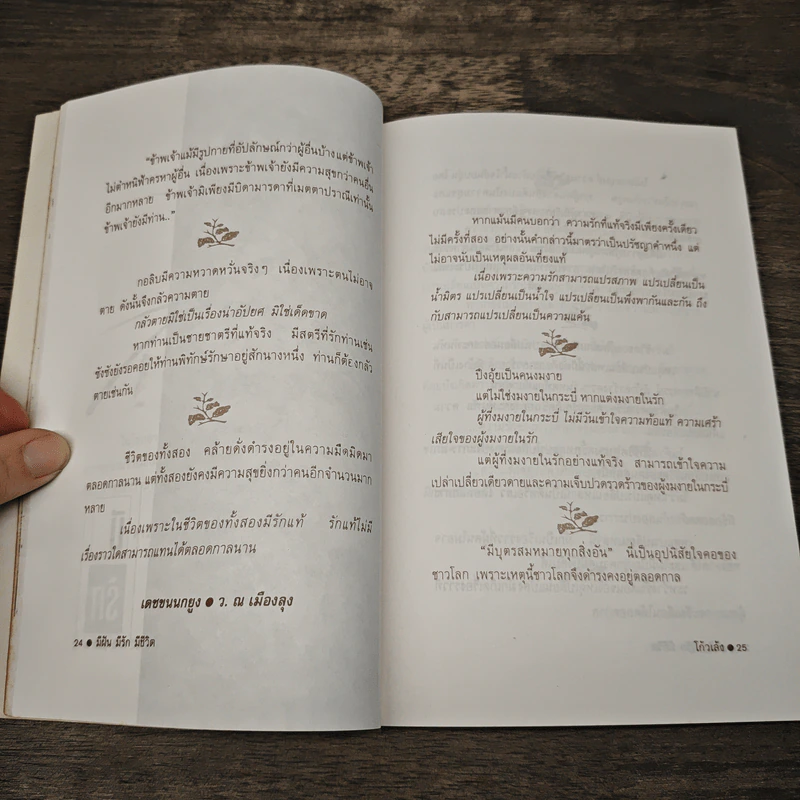 "ข้าพเจ้าแม้มีรูปกายที่อัปลักษณ์กว่าผู้อื่นบ้าง แต่ข้าพเจ้า
ไม่ตำหนิฟ้าครหาผู้อื่น เนื่องเพราะข้าพเจ้ายังมีความสุขกว่าคนอื่น
อีกมากหลาย ข้าพเจ้ามิเพียงมีบิดามารดาที่เมตตาปราณีเท่านั้น
ข้าพเจ้ายังมีท่าน.."
กอลิบมีความหวาดหวั่นจริงๆ เนื่องเพราะตนไม่อาจ
ตาย ดังนั้นจึงกลัวความตาย
กลัวตายมิใช่เป็นเรื่องน่าอัปยศ มิใช่เด็ดขาด
หากท่านเป็นชายชาตรีที่แท้จริง มีสตรีที่รักท่านเช่น
ซังซังยังรอคอยให้ท่านพิทักษ์รักษาอยู่สักนางหนึ่ง ท่านก็ต้องกลัว
ตายเช่นกัน
ชีวิตของทั้งสอง คล้ายดั่งดำรงอยู่ในความมืดมิดมา
ตลอดกาลนาน แต่ทั้งสองยังคงมีความสุขยิ่งกว่าคนอีกจำนวนมาก
หลาย
เนื่องเพราะในชีวิตของทั้งสองมีรักแท้ รักแท้ไม่มี
เรื่องราวใดสามารถแทนได้ตลอดกาลนาน
เดชขนนกยูง ● ว. ณ เมืองลุง
24 ● มีฝัน มีรัก มีชีวิต
หากแม้นมีคนบอกว่า ความรักที่แท้จริงมีเพียงครั้งเดียว
ไม่มีครั้งที่สอง อย่างนั้นคำกล่าวนี้มาตรว่าเป็นปรัชญาคำหนึ่ง แต่
ไม่อาจนับเป็นเหตุผลอันเที่ยงแท้
เนื่องเพราะความรักสามารถแปรสภาพ แปรเปลี่ยนเป็น
น้ำมิตร แปรเปลี่ยนเป็นน้ำใจ แปรเปลี่ยนเป็นพึ่งพากันและกัน ถึง
กับสามารถแปรเปลี่ยนเป็นความแค้น
ปึงอุ้ยเป็นคนงมงาย
แต่ไม่ใช่งมงายในกระบี่ หากแต่งมงายในรัก
ผู้ที่งมงายในกระบี่ ไม่มีวันเข้าใจความท้อแท้ ความเศร้า
เสียใจของผู้งมงายในรัก
แต่ผู้ที่งมงายในรักอย่างแท้จริง สามารถเข้าใจความ
เปล่าเปลี่ยวเดียวดายและความเจ็บปวดรวดร้าวของผู้งมงายในกระบี่
"มีบุตรสมหมายทุกสิ่งอัน" นี่เป็นอุปนิสัยใจคอของ
ชาวโลก เพราะเหตุนี้ชาวโลกจึงดำรงคงอยู่ตลอดกาล
โก้วเล้ง ● 25